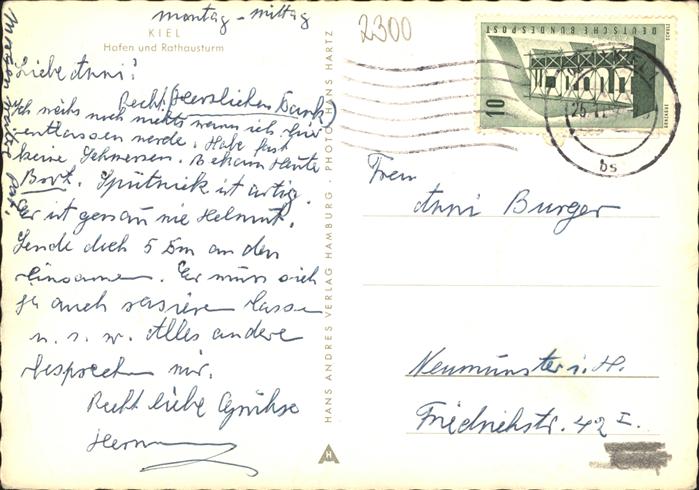 Montag - Mittag
2300
KIEL
Hafen und Rathausturm
Liebe Anni!
Recht (herzlichen Dank)
Ich weiß noch nichts wann ich hier
entlassen werde. Habe fast
keine Schmerzen. Bekam Heute
Brot. Sputnick ist artig.
Er ist genau wie Helmut.
Sende doch 5 Dm an den
Einsamen. Er muss sich
ja auch rasieren lassen
u. s. w. Alles andere
besprechen wir.
Recht liebe Grüße
Hermann
HANS ANDRES VERLAG HAMBURG - PHOTO: HANS HARTZ
DEUTSCHE BUNDESPOST
10
bs
Frau
Anni Burger
Neumünster i. H.
Friedrichstr. 42 I.